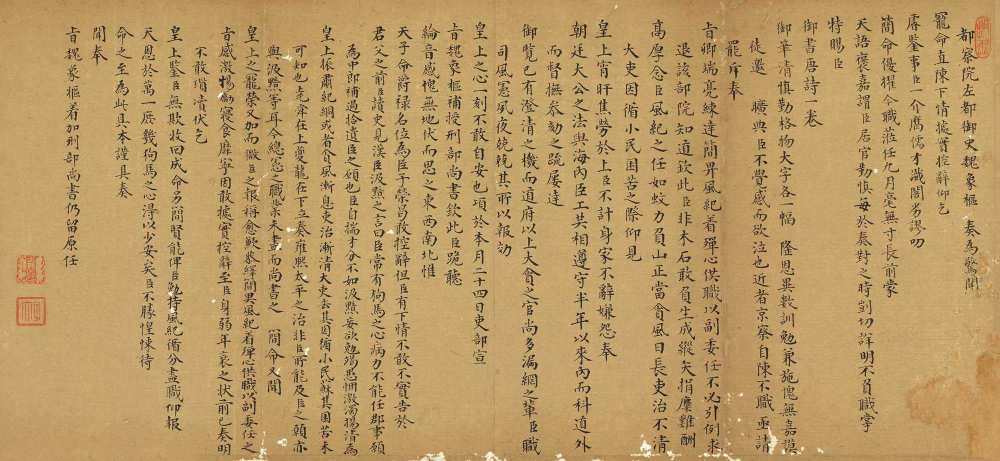 都察院左都御史魏象樞 奏為驚聞
寵命直陳下情據實控辭仰乞
睿鑒事臣一介鷹儒才識闇劣謬叨
簡命優擢今職蒞任九月毫無寸長前蒙
天語褒嘉謂臣居官勤慎每於奏對之時剴切詳明不負職掌
特賜臣
御書唐詩一卷
御筆清慎勤格物大字各一幅 隆恩異數訓勉兼施愧無嘉謨
徒邀 曠典臣不覺感而欲泣也近者京察自陳不職亟請
罷斥奉
旨卿端亮練達簡畀風紀着殫心供職以副委任不必引例求
退該部院知道欽此臣非木石敢負生成縱矢捐糜難酬
高厚念臣風紀之任如蚊力負山正當貪風日長吏治不清
大吏因循小民困苦之際仰見
皇上宵旰焦勞於上臣不計身家不辭嫌怨奉
朝廷大公之法與海內臣工共相遵守半年以來內而科道外
而督撫參劾之疏屢達
御覽已有澄清之機而道府以上大貪之官尚多漏網之輩臣職
司風憲夙夜兢兢其所以報効
皇上之心一刻不敢自安也項於本月二十四日吏部宣
旨魏象樞補授刑部尚書欽此臣跪聽
綸音感愧無地伏而思之東西南北惟
天子命爵祿名位為臣子榮苟敢控辭但臣有下情不敢不實告於
君父之前臣讀史見漢臣汲黯之言曰臣常有狗馬之心病力不能任郡事願
為中郎補過拾遺臣之願也臣自揣才分不如汲黯妄欲勉竭愚悃激濁揚清為
皇上振肅紀綱或者貪風漸息吏治漸清大吏去其因循小民蘇其困苦未
可知也堯舜在上夔龍在下立奏雍熙太平之治非臣所能及臣之願亦
與汲黯等耳今總憲之職業未盡而尚書之 簡命又聞
皇上之寵榮又加而微臣之報稱愈歉恭繹簡畀風紀着殫心供職以副委任之
旨感激惕勵寢食靡寧因敢據實控辭至臣身弱年衰之狀前已奏明
不敢瑣瀆伏乞
皇上鑒臣無欺收回成命另簡賢能俾臣勉持風紀循分盡職仰報
天恩於萬一庶幾狗馬之心淂以少安矣臣不勝惶悚待
命之至為此具本謹具奏
聞奉
旨魏象樞着加刑部尚書仍留原任